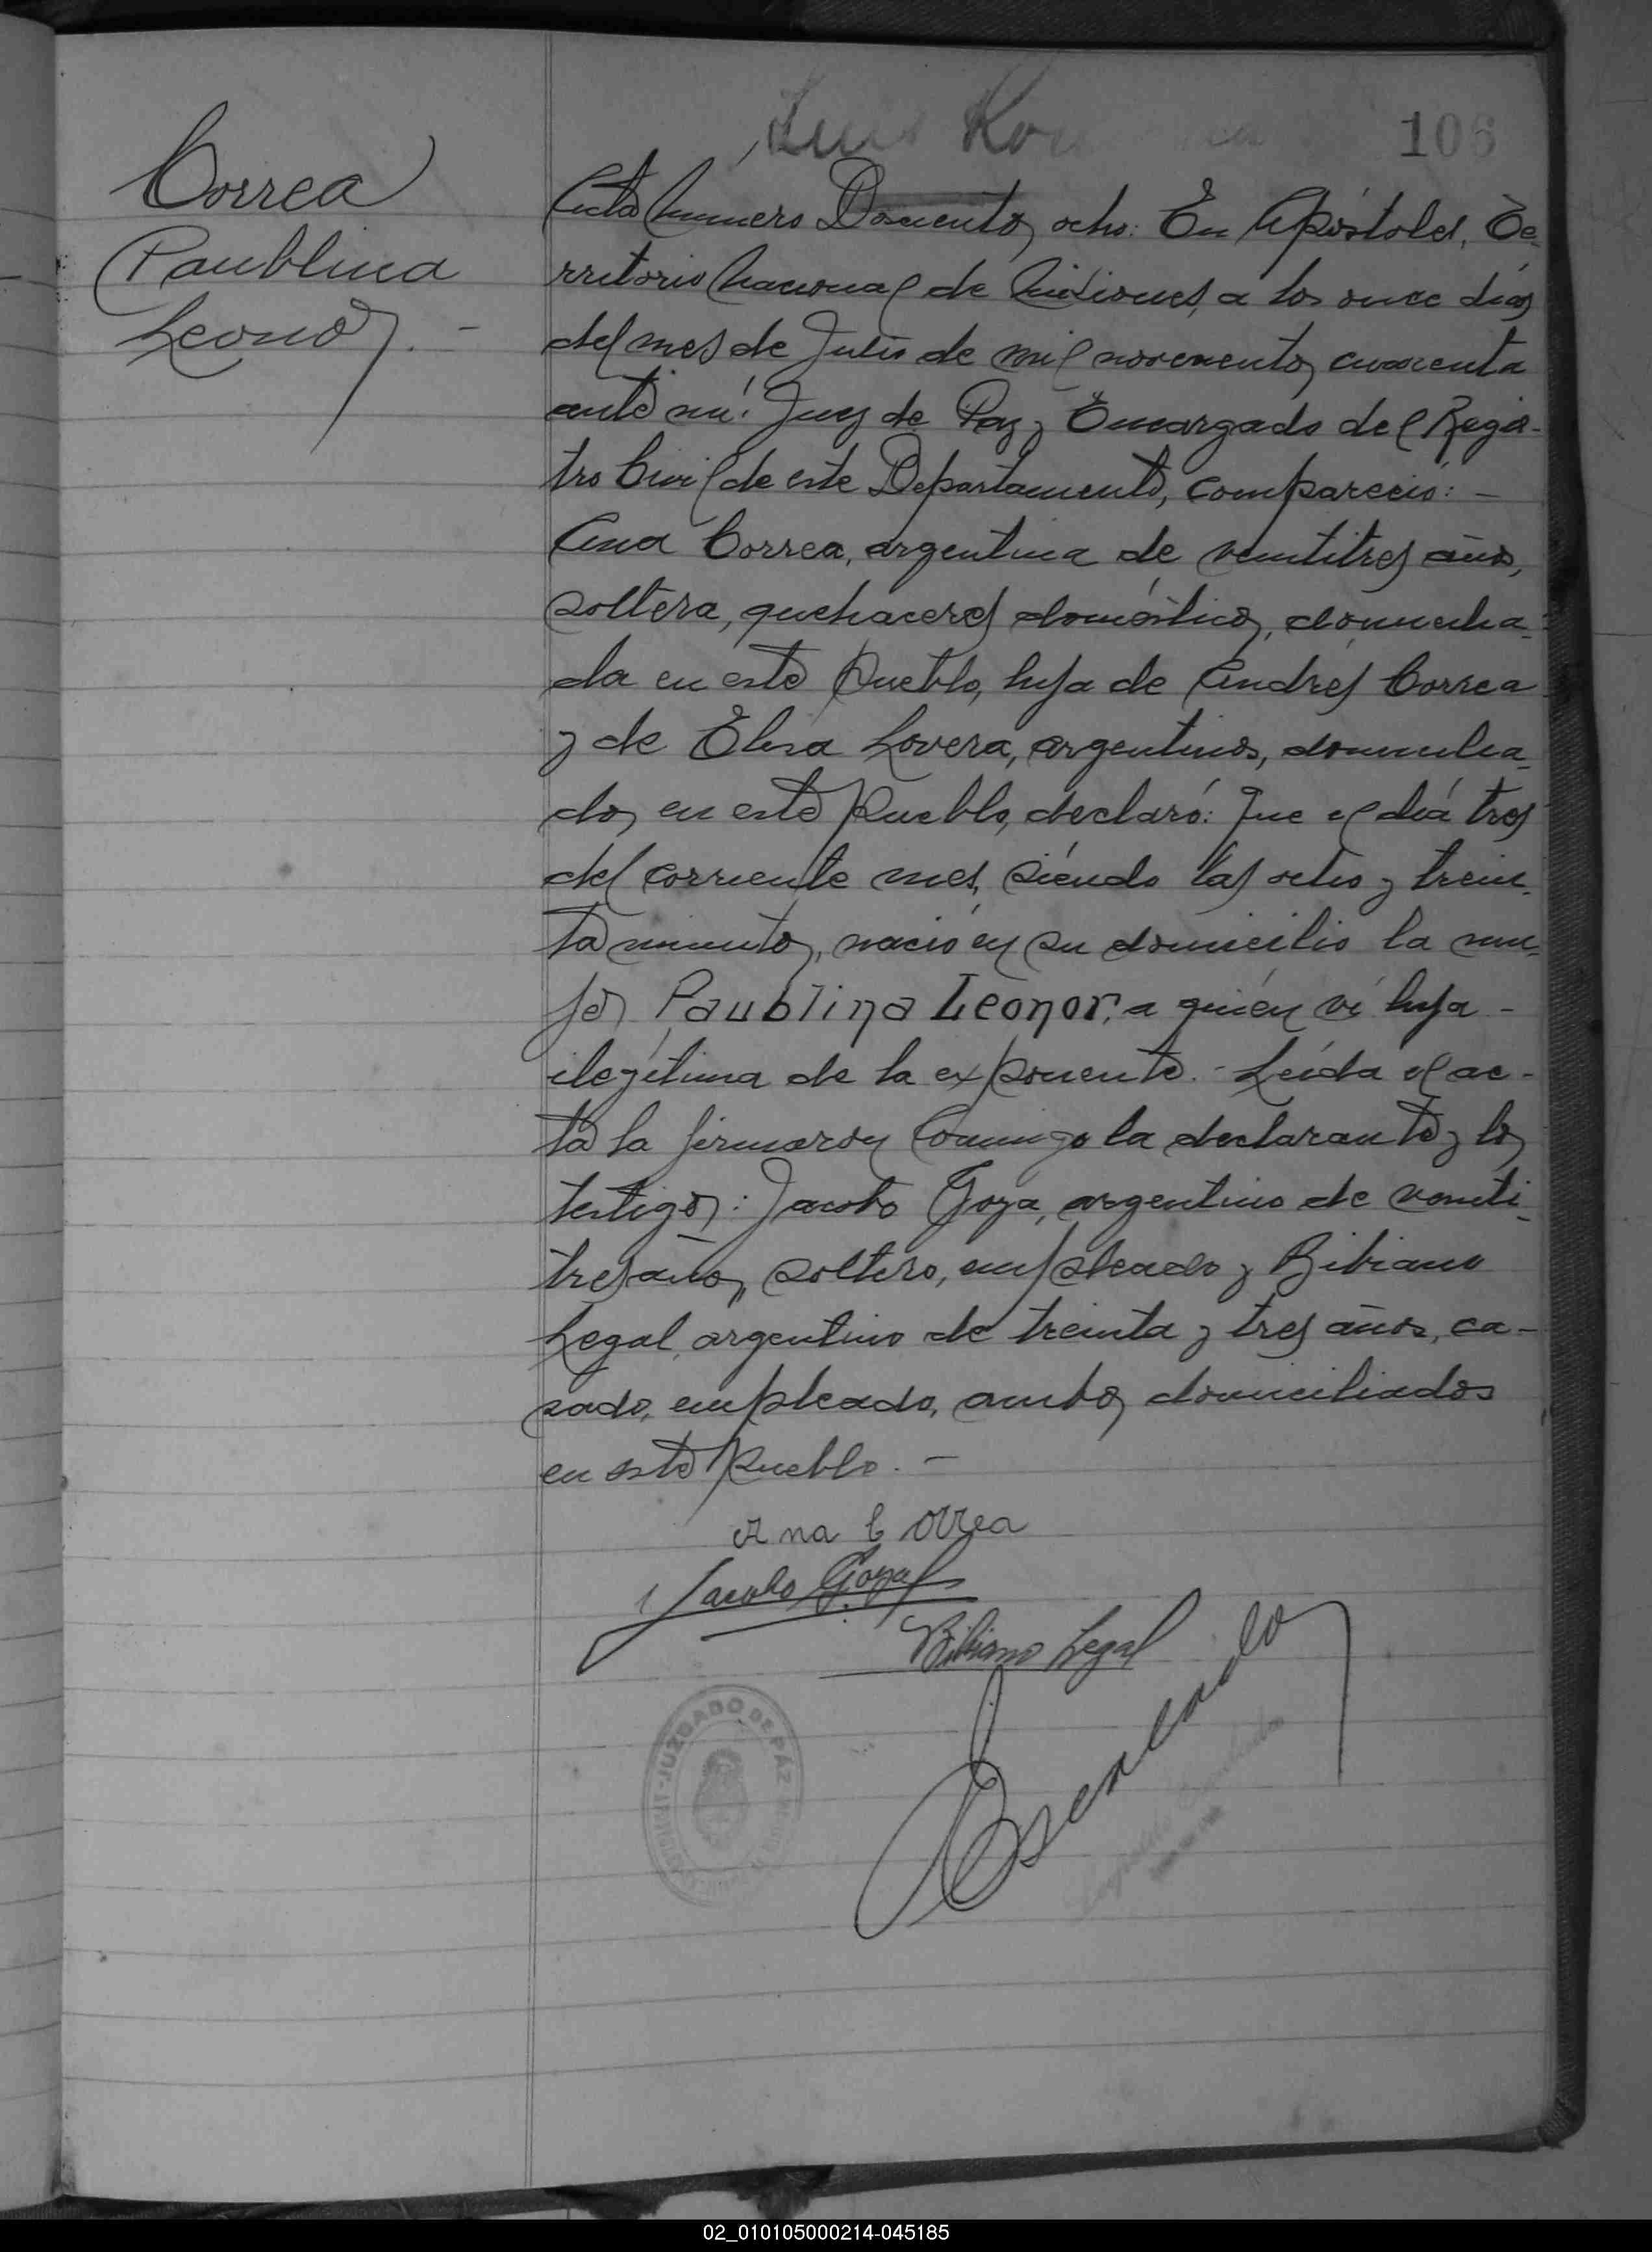 106
Correa
Paublina
Leonor. -
Acta número Doscientos ocho: En Apóstoles, Te-
rritorio Nacional de Misiones, a los once días
del mes de Julio de mil novecientos cuarenta
ante mí: Juez de Paz y Encargado del Regis-
tro Civil de este Departamento, compareció: -
Ana Correa, argentina de veintitres años,
soltera, quehaceres domésticos, domicilia-
da en este Pueblo, hija de Andrés Correa
y de Elisa Lovera, argentinos, domicilia-
dos en este Pueblo, declaró: Que el día tres
del corriente mes, siendo las ocho y trein-
ta minutos, nació en su domicilio la mu-
jer Paublina Leonor, a quién ví hija -
ilegítima de la exponente. - Leída el ac-
ta la firmaron conmigo la declarante y los
testigos: Jacobo Goya, argentino de veinti-
tres años, soltero, empleado y Bibiano
Legal, argentino de treinta y tres años, ca-
sado, empleado, ambos domiciliados
en este Pueblo. -
Ana Correa
Jacobo Goya
Bibiano Legal
Escalada
JUZGADO DE PAZ
02_010105000214-045185